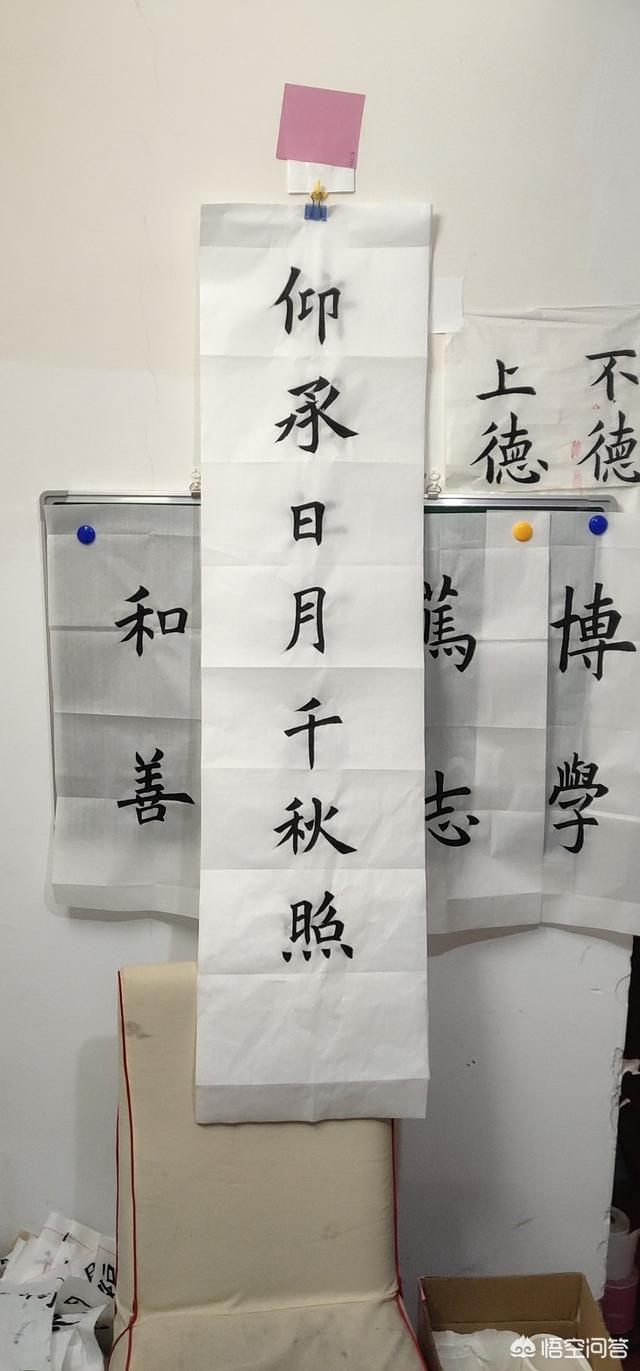 仰承日月千秋照
不德
上德
博學
篤志
和善
悟空问答